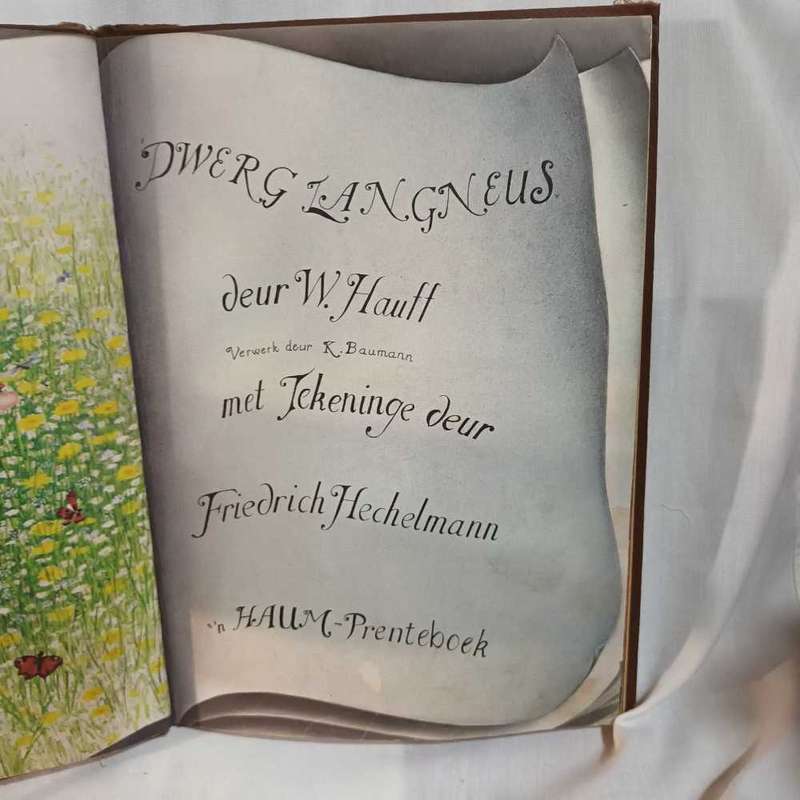 DWERG LANGNEUS
deur W. Hauff
Verwerk deur K. Baumann
met Tekeninge deur
Friedrich Hechelmann
'n HAUM-Prenteboek